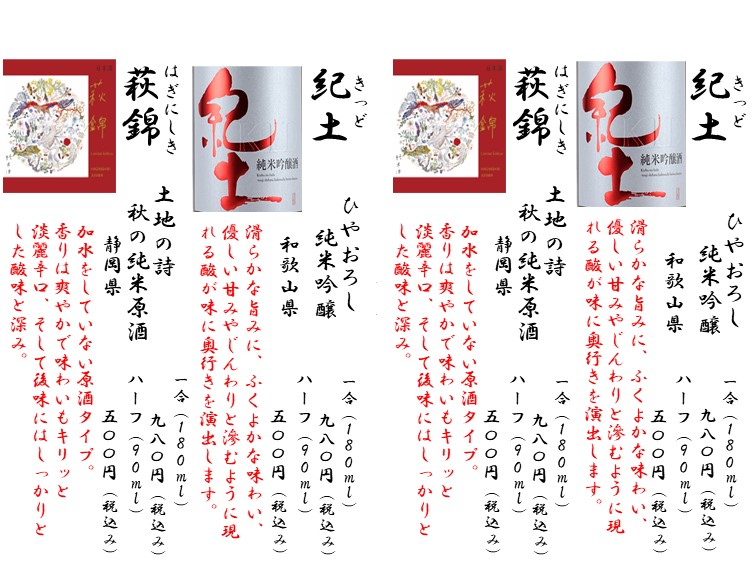 きっど
紀土
ひやおろし
純米吟醸
和歌山県
一合（180ml）
九八〇円（税込み）
ハーフ（90ml）
五〇〇円（税込み）
滑らかな旨みに、ふくよかな味わい、
優しい甘みやじんわりと滲むように現
れる酸が味に奥行きを演出します。
紀土
純米吟醸酒
はぎにしき
萩錦
土地の詩
秋の純米原酒
静岡県
一合（180ml）
九八〇円（税込み）
ハーフ（90ml）
五〇〇円（税込み）
加水をしていない原酒タイプ。
香りは爽やかで味わいもキリッと
淡麗辛口、そして後味にはしっかりと
した酸味と深み。
萩錦
きっど
紀土
ひやおろし
純米吟醸
和歌山県
一合（180ml）
九八〇円（税込み）
ハーフ（90ml）
五〇〇円（税込み）
滑らかな旨みに、ふくよかな味わい、
優しい甘みやじんわりと滲むように現
れる酸が味に奥行きを演出します。
紀土
純米吟醸酒
はぎにしき
萩錦
土地の詩
秋の純米原酒
静岡県
一合（180ml）
九八〇円（税込み）
ハーフ（90ml）
五〇〇円（税込み）
加水をしていない原酒タイプ。
香りは爽やかで味わいもキリッと
淡麗辛口、そして後味にはしっかりと
した酸味と深み。
萩錦